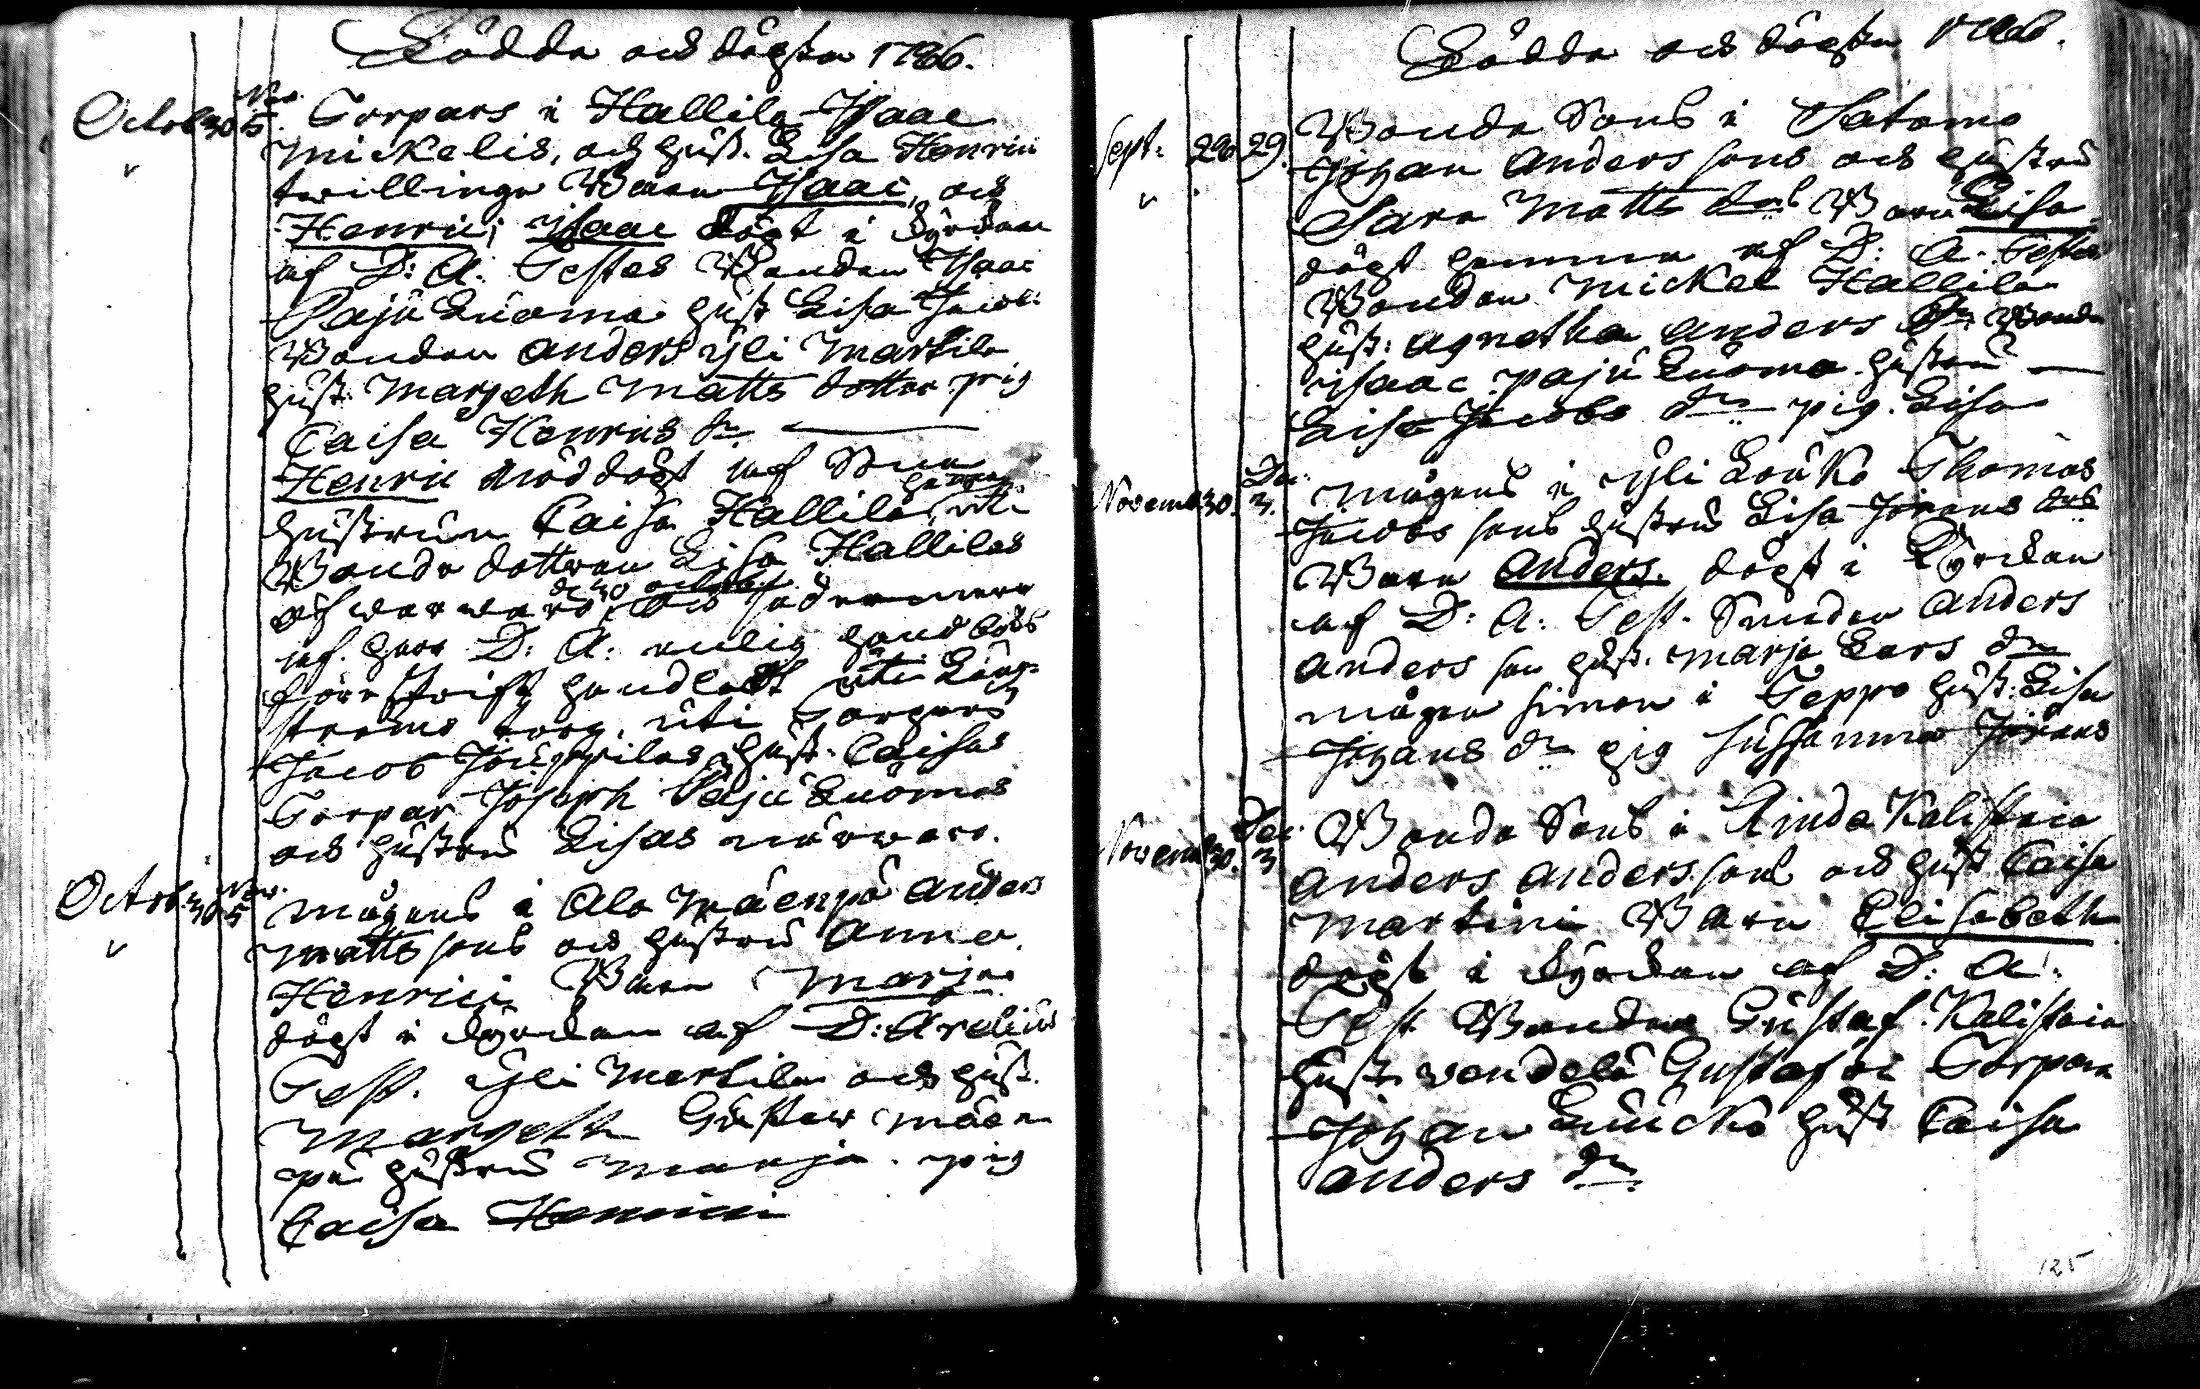 Födde och döpte 1786.
Octob. 30 Nov. 5. Torpars i Hallila Isaac
Mickelis, och hust. Lisa Henrici
twillinge Barn Isaac, och
Henric; Isaac döpt i Kyrckan
af D: A: Testes Bonden Isaac
Paju Luoma hust Lisa Jacobi
Bonden Anders yli Markila
hust. Margeth Matts dotter pig
Caisa Henrics dr.
Henric nöddöpt af Sme
hustrun Caisa Hallila, uti
Bonde dottren Lisa Hallilas
närwaro, den 30 octob.
af Herr D: A: enlig handboks
föreskrift handladt uti
torp, uti Torpars
Jacob Jouppilas hust. Caisas
Torpar Joseph Paju Luomas
och hustru Lisas närwaro.
Octob. 30 Nov. 5 Mågens i Ala Mäenpä Anders
Matts sons och hustru Anna
Henrici Barn Marja
döpt i kyrckan af D: Arelius
Test. Yli Markila och hust.
Margeth Gustav Mäen
pä hustru Marja. pig
Caisa Henrici
Födde och döpte 1786.
Sept. 28 29. Bonde Sons i Satamo
Johan Anders sons och hustru
Sara Matts drs Barn Lisa
döpt hemma af D: A. Testes
Bonden Mickel Hallila
hust: Agnetha Anders dr. Bonden
Isaac paju Luoma hustru
Lisa Jacobs dr pig. Lisa
Novemb 30. Dec. 3. Mågens i Yli Louko Thomas
Jacobs sons hustru Lisa Jörans drs
Barn Anders. döpt i Kyrckan
af D: A: Test. Smeden Anders
Anders son hust. Marja Lars dr
mågen Simon i Seppo hust: Lisa
Johans dr pig Sussanna Jörans
Novemb 30. Dec. 3 Bonde Sons i Rinda Kalistaia
Anders Anders sons och hust Caisa
Martini Barn Elisabeth
döpt i kyrckan af D: A:
Test Bonden Gustaf Kalistaia
hust. Vendela Gustafsi Torparn
Johan Luucko hust Caisa
Anders dr.
125